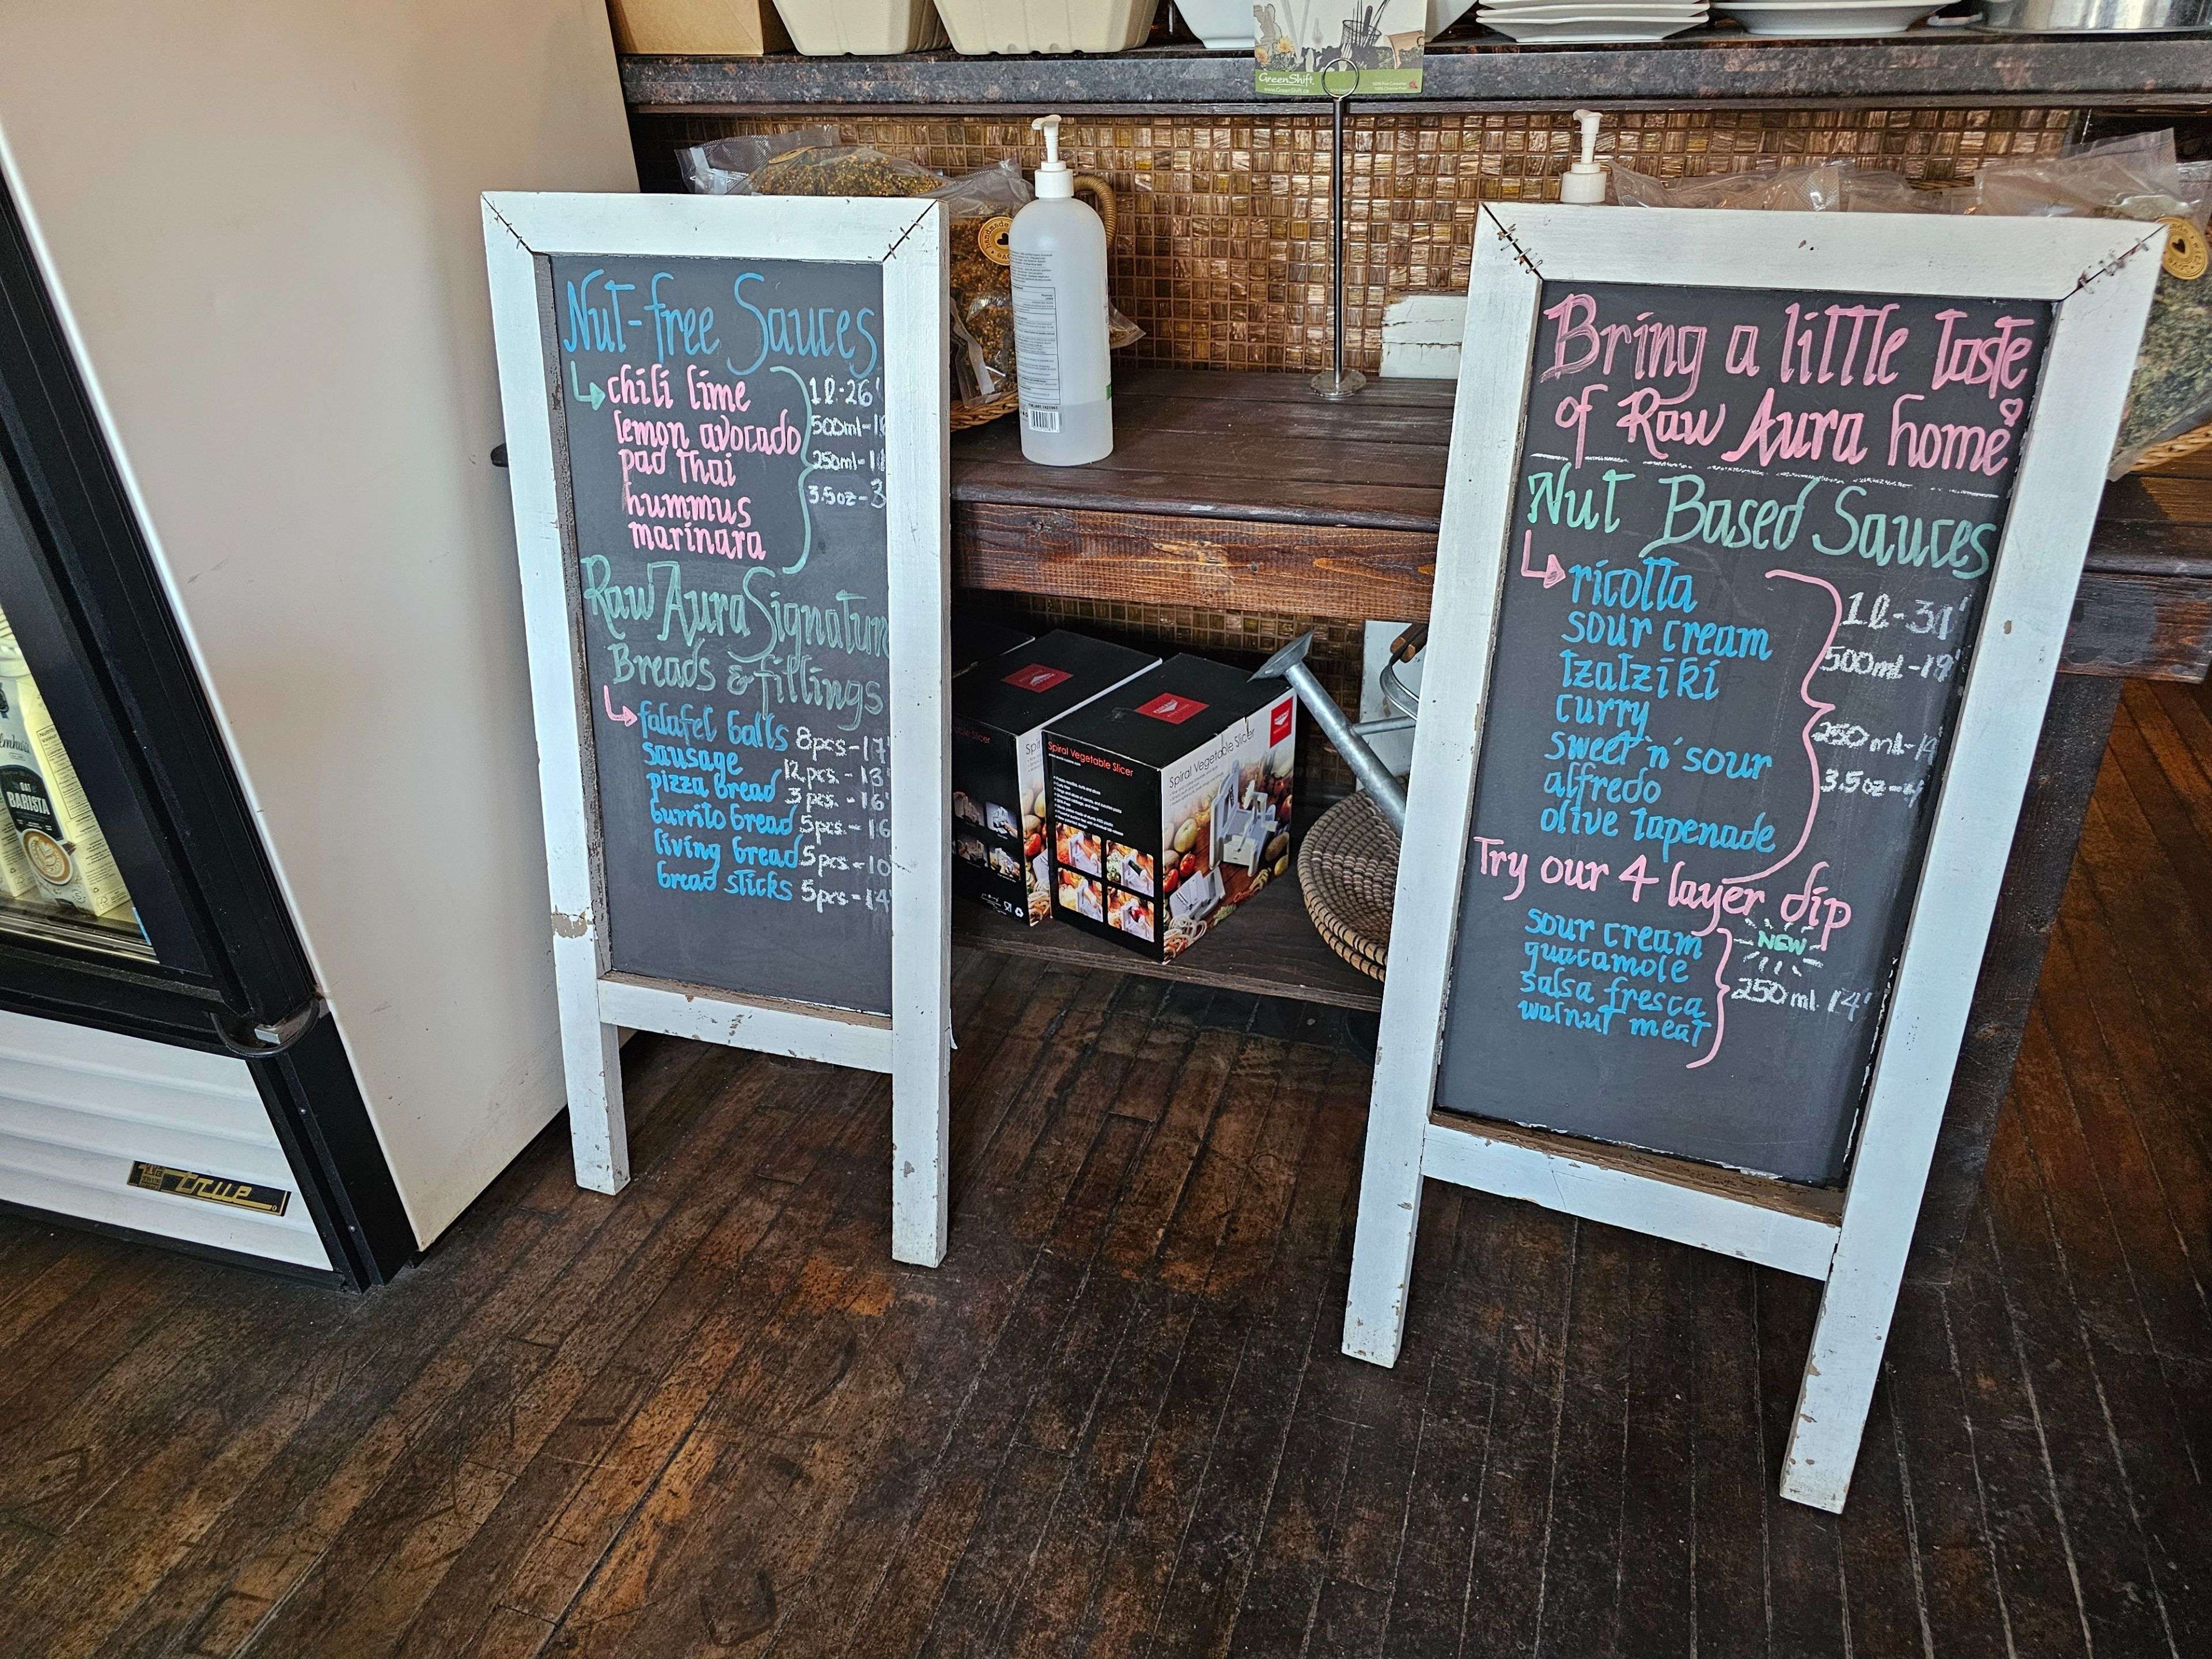 GreenShift
www.GreenShift.ca
Nut-free Sauces
chili lime
lemon avocado
pad thai
hummus
marinara
1l-26
500ml-
250ml-
3.5oz-3
Raw Aura Signature
Breads & fillings
falafel balls 8pcs-17
sausage 12pcs.-13
pizza bread 3pcs.-16
burrito bread 5pcs-16
living bread 5pcs-10
bread sticks 5pcs-14
Bring a little taste
of Raw Aura home
Nut Based Sauces
ricotta
sour cream
tzatziki
curry
sweet 'n' sour
alfredo
olive tapenade
500ml-19
250ml-
3.5oz-
Try our 4 layer dip
NEW
sour cream
guacamole
salsa fresca
walnut meat
250ml 14
Spiral Vegetable Slicer
Spiral Vegetable Slicer
OAT
BARISTA
true